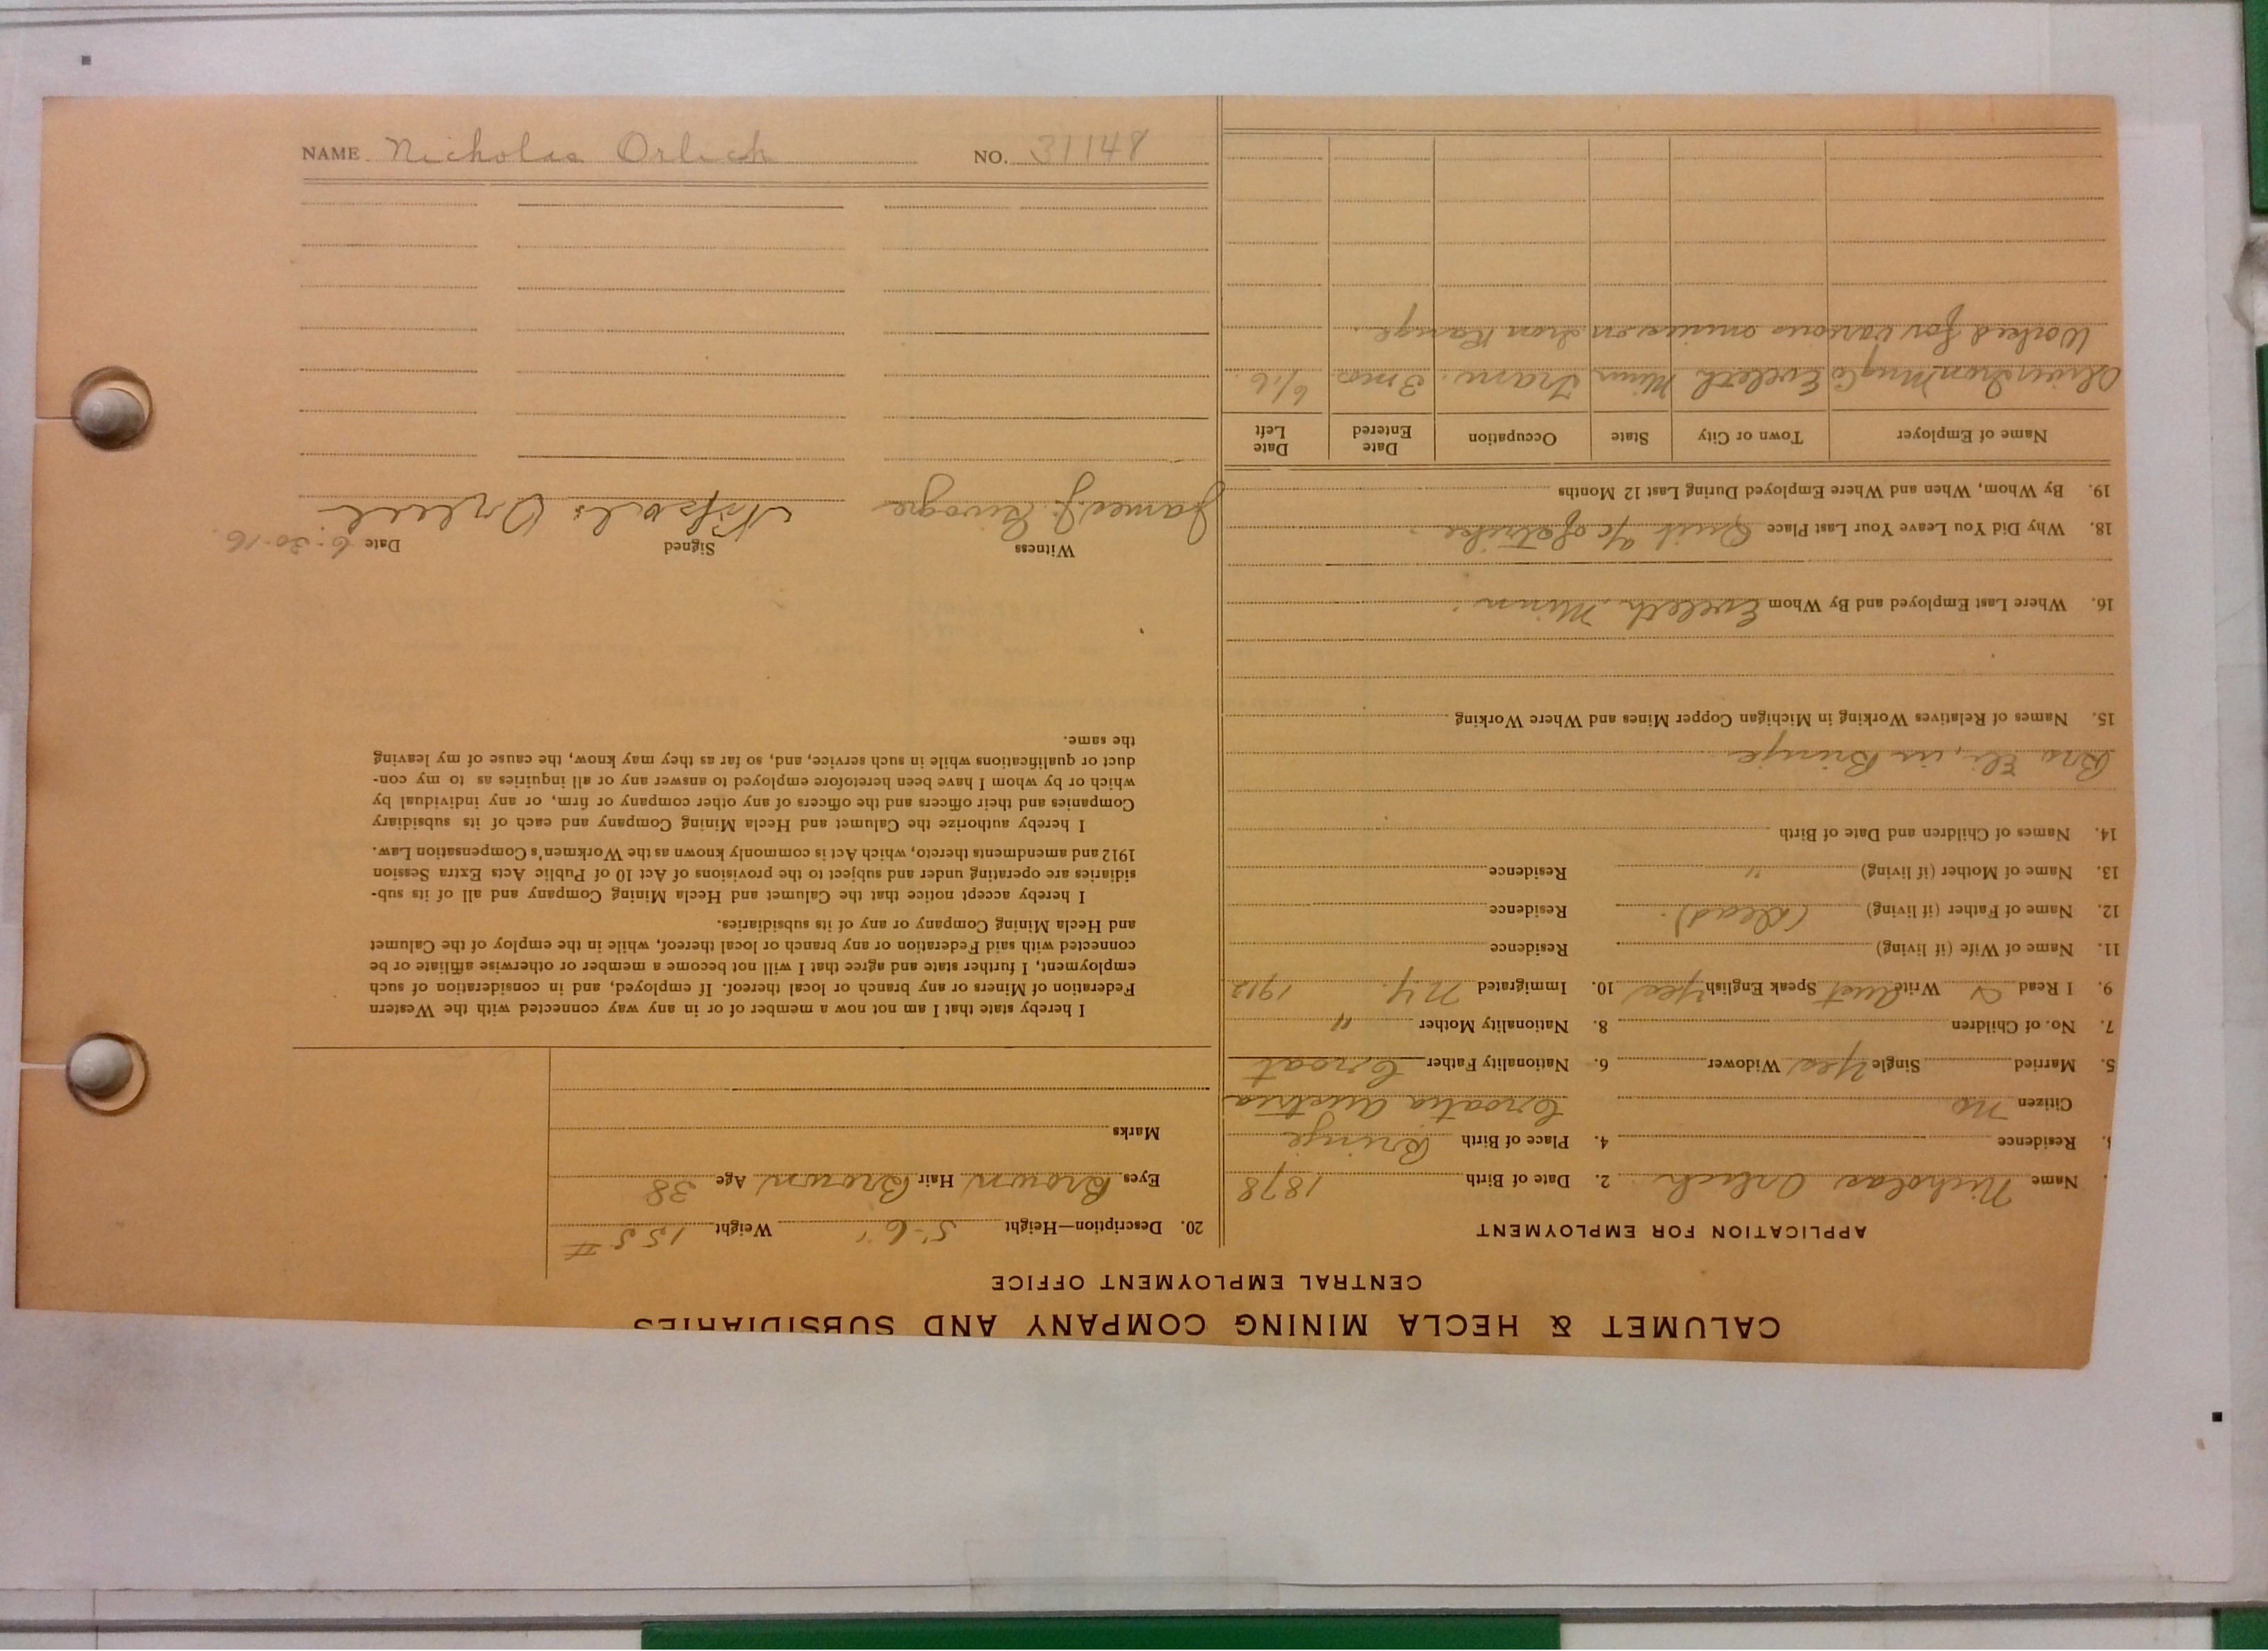 NAME Nicholas Orlich NO. 31148
CALUMET & HECLA MINING COMPANY AND SUBSIDIARIES
CENTRAL EMPLOYMENT OFFICE
APPLICATION FOR EMPLOYMENT
Name Nicholas Orlich 2. Date of Birth 1878
Residence 4. Place of Birth Brinje
Citizen no Croatia Austria
5. Married Single Yes Widower 6. Nationality Father Croat
7. No. of Children 8. Nationality Mother "
9. I Read Write Aust Speak English Yes 10. Immigrated N.Y. 1912
11. Name of Wife (if living) Residence
12. Name of Father (if living) (Dead). Residence
13. Name of Mother (if living) " Residence
14. Names of Children and Date of Birth
Bro Eli, in Brinje
15. Names of Relatives Working in Michigan Copper Mines and Where Working
16. Where Last Employed and By Whom Eveleth Minn.
18. Why Did You Leave Your Last Place Quit a/c of strike
19. By Whom, When and Where Employed During Last 12 Months
Name of Employer Town or City State Occupation Date Entered Date Left
Oliver Iron Mng Co Eveleth Minn Tram. 3 mos. 6/16
Worked for various mines on Iron Range.
20. Description—Height 5'-6" Weight 155#
Eyes Brown Hair Brown Age 38
Marks
I hereby state that I am not now a member of or in any way connected with the Western
Federation of Miners or any branch or local thereof. If employed, and in consideration of such
employment, I further state and agree that I will not become a member or otherwise affiliate or be
connected with said Federation or any branch or local thereof, while in the employ of the Calumet
and Hecla Mining Company or any of its subsidiaries.
I hereby accept notice that the Calumet and Hecla Mining Company and all of its sub-
sidiaries are operating under and subject to the provisions of Act 10 of Public Acts Extra Session
1912 and amendments thereto, which Act is commonly known as the Workmen's Compensation Law.
I hereby authorize the Calumet and Hecla Mining Company and each of its subsidiary
Companies and their officers and the officers of any other company or firm, or any individual by
which or by whom I have been heretofore employed to answer any or all inquiries as to my con-
duct or qualifications while in such service, and, so far as they may know, the cause of my leaving
the same.
Witness Signed Date 6-30-16.
James J. Orlich